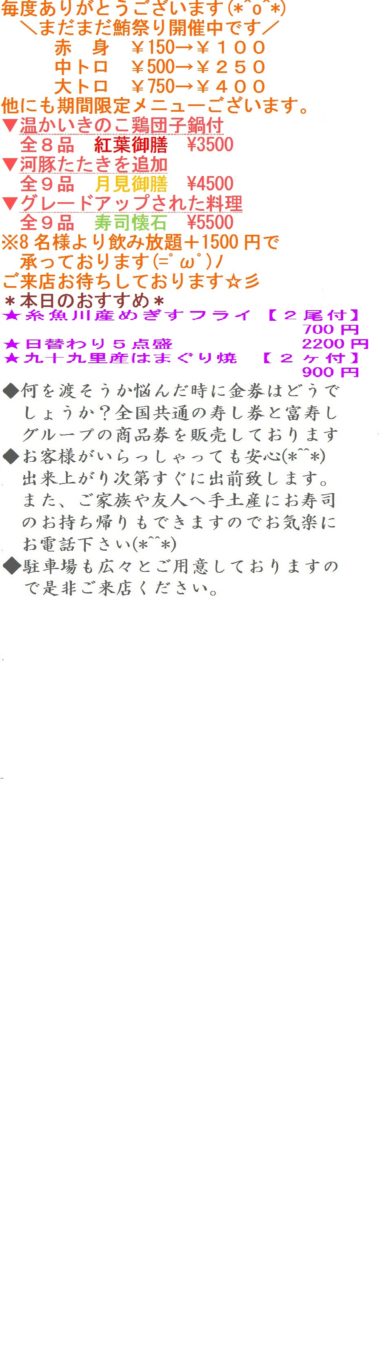 毎度ありがとうございます(*^o^*)
＼まだまだ鮪祭り開催中です／
赤　身　￥150→￥１００
中トロ　￥500→￥２５０
大トロ　￥750→￥４００
他にも期間限定メニューございます。
▼温かいきのこ鶏団子鍋付
全８品　紅葉御膳　¥3500
▼河豚たたきを追加
全９品　月見御膳　¥4500
▼グレードアップされた料理
全９品　寿司懐石　¥5500
※8名様より飲み放題＋1500円で
承っております(=ﾟωﾟ)ﾉ
ご来店お待ちしております☆彡
＊本日のおすすめ＊
★糸魚川産めぎすフライ【２尾付】
700円
★日替わり５点盛　2200円
★九十九里産はまぐり焼　【２ヶ付】
900円
◆何を渡そうか悩んだ時に金券はどうで
しょうか？全国共通の寿し券と富寿し
グループの商品券を販売しております
◆お客様がいらっしゃっても安心(*^^*)
出来上がり次第すぐに出前致します。
また、ご家族や友人へ手土産にお寿司
のお持ち帰りもできますのでお気楽に
お電話下さい(*^^*)
◆駐車場も広々とご用意しておりますの
で是非ご来店ください。